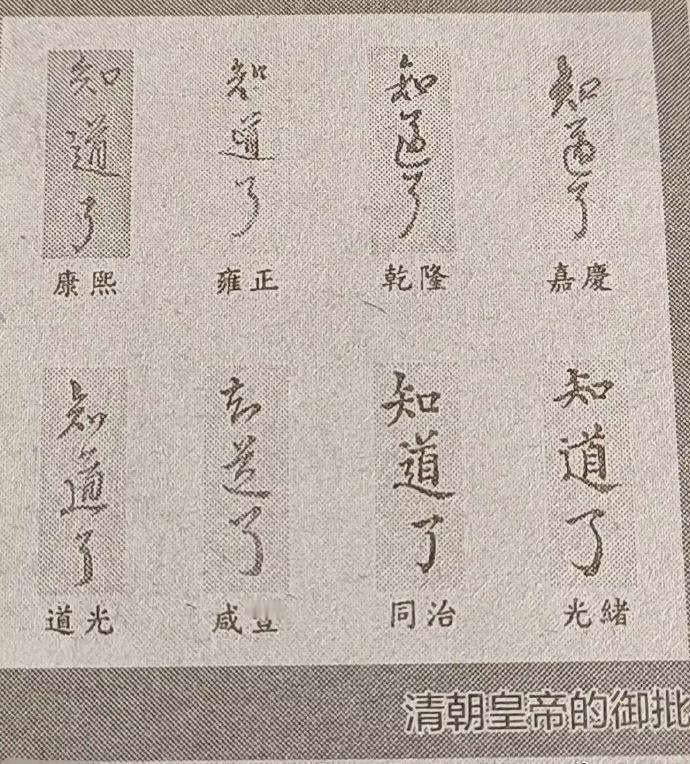 知道了
知道了
知道了
知道了
康熙
雍正
乾隆
嘉慶
知道了
知道了
知道了
知道了
道光
咸
同治
光緒
清朝皇帝的御批